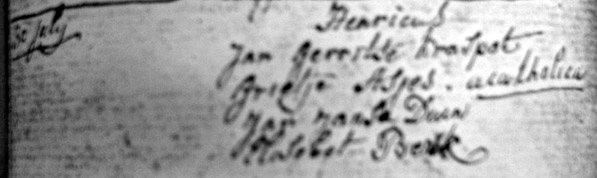 30 July
Henricus
Jan Gerritse Kraspot
Grietje Asjes. acatholica
Jan Janse Duin
Berk